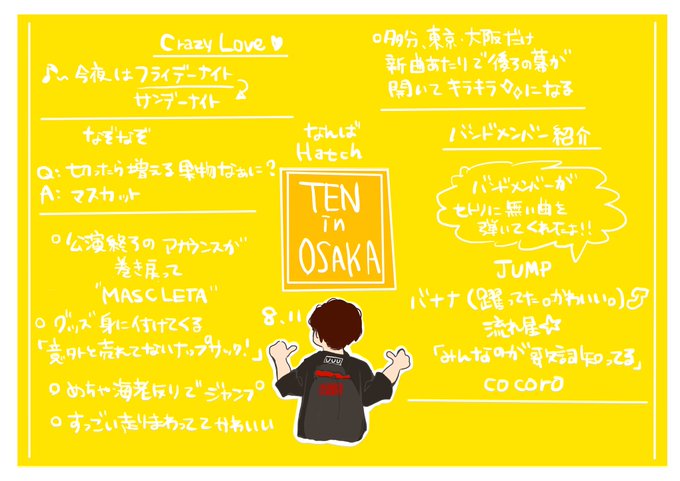 Crazy Love♥
♪〜今夜はフライデーナイト
サンデーナイト
なぞなぞ
Q: 切ったら増える果物なぁに?
A: マスカット
○公演終了のアナウンスが
巻き戻って
"MASCLETA"
○グッズ身に付けてくる
「意外と売れてないナップサック!」
○めちゃ海老反りでジャンプ
○すっごい走りまわっててかわいい
なんば
Hatch
TEN
in
OSAKA
8.11
○多分、東京・大阪だけ
新曲あたりで後ろの幕が
開いてキラキラ✧になる
バンドメンバー紹介
バンドメンバーが
セトリに無い曲を
弾いてくれたよ!!
JUMP
バナナ(躍ってた。かわいい。)
流れ星☆
「みんなのが歌詞知ってる」
cocoro